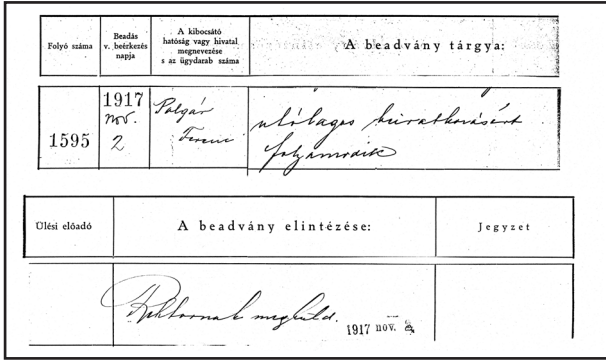 Folyó száma
Beadás
v. beérkezés
napja
A kibocsátó
hatóság vagy hivatal
megnevezése
s az ügydarab száma
A beadvány tárgya:
1595
1917
nov.
2
Polgár
Ferenc
utólagos beiratkozásért
folyamodik
Ülési előadó
A beadvány elintézése:
Jegyzet
Rektornak megküld.
1917 nov.